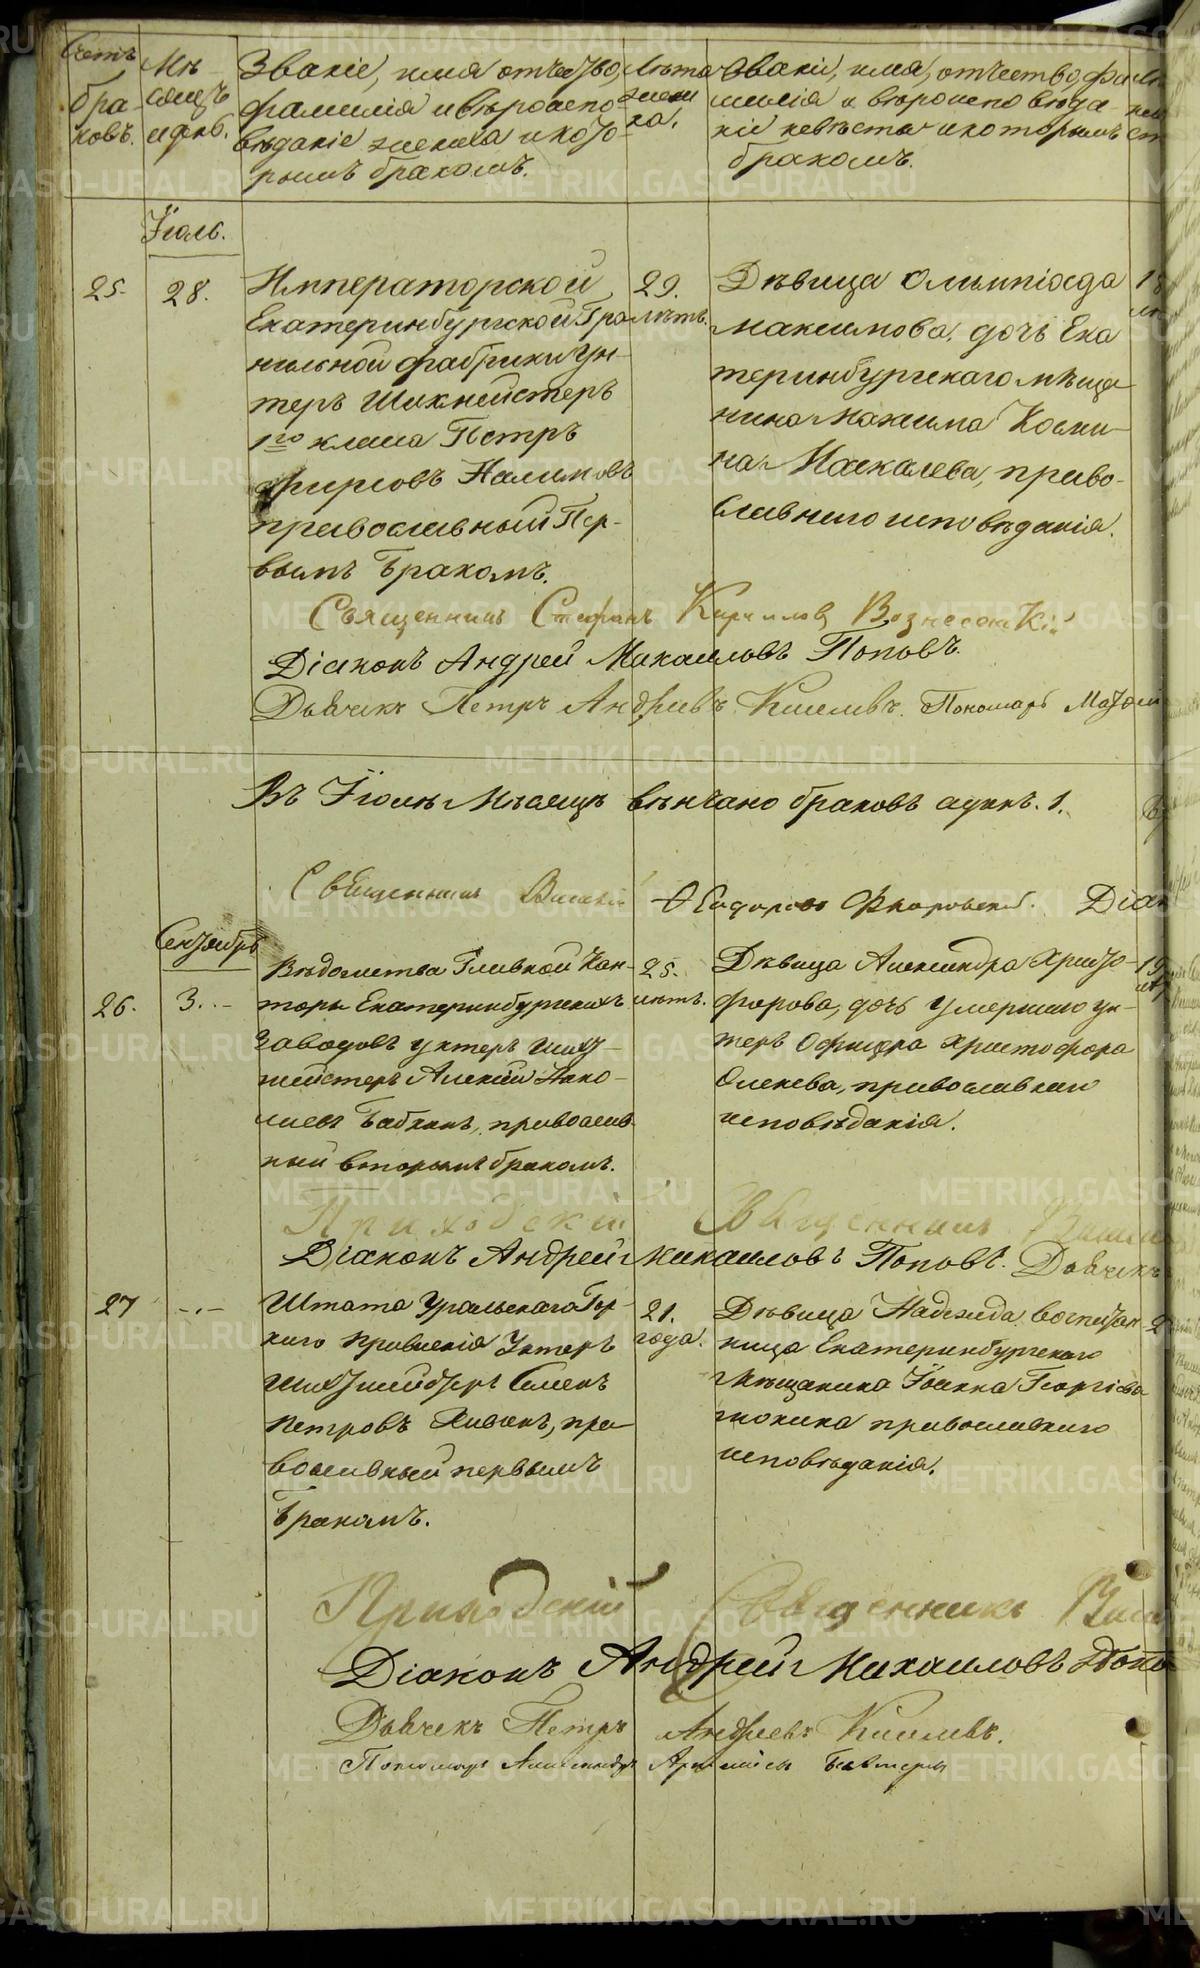 Счетъ браковъ.
Мѣсяцъ и днѣ.
Званіе, имя отчество, фамилія и вѣроисповѣданіе жениха и которымъ бракомъ.
Лѣта жениха.
Званіе, имя, отчество, фамилія и вѣроисповѣданіе невѣсты и которымъ бракомъ.
Іюль.
25.
28.
Императорской
Екатеринбургской Гра
нильной фабрики Ун
теръ Шихмейстеръ
1го класса Петръ
Фирсовъ Налимовъ
православный Пер-
вымъ бракомъ.
29.
лѣтъ.
Дѣвица Олимпіада
Максимова, дочь Ека
теринбургскаго мѣща
нина Максима Косми-
на Москалева, право-
славнаго исповѣданія.
Священникъ Стефанъ Кирилловъ Вознесенскій
Діаконъ Андрей Михаиловъ Поповъ.
Дьячекъ Петръ Андреевъ Киселевъ. Пономарь
Въ Іюлѣ Мѣсяцѣ вѣнчано браковъ одинъ. 1.
Священникъ Василій Ѳеодоровъ Флоровскій. Діак
Сентябрь
26.
3.
Вѣдомства Главной Кон-
торы Екатеринбургскихъ
Заводовъ унтеръ Шихт-
мейстеръ Алексій Нико-
лаевъ Бабкинъ, православ
ный вторымъ бракомъ.
25.
лѣтъ.
Дѣвица Александра Христо-
форова, дочь умершаго ун-
теръ Офицера Христофора
Олекова, православнаго
исповѣданія.
Приходскій Священникъ Васил
Діаконъ Андрей Михаиловъ Поповъ. Дьячекъ
27
Штата Уральскаго Гор-
наго Правленія Унтеръ
Шихтмейстеръ Семенъ
Петровъ Хивинъ, пра
вославный первымъ
бракомъ.
21.
года.
Дѣвица Надежда воспитан-
ница Екатеринбургскаго
Мѣщанина Іоанна Георгіева
православнаго
исповѣданія.
Приходскій Священникъ Васи
Діаконъ Андрей Михаиловъ Попо
Дьячекъ Петръ Андреевъ Киселевъ.
Пономарь Александръ
METRIKI.GASO-URAL.RU